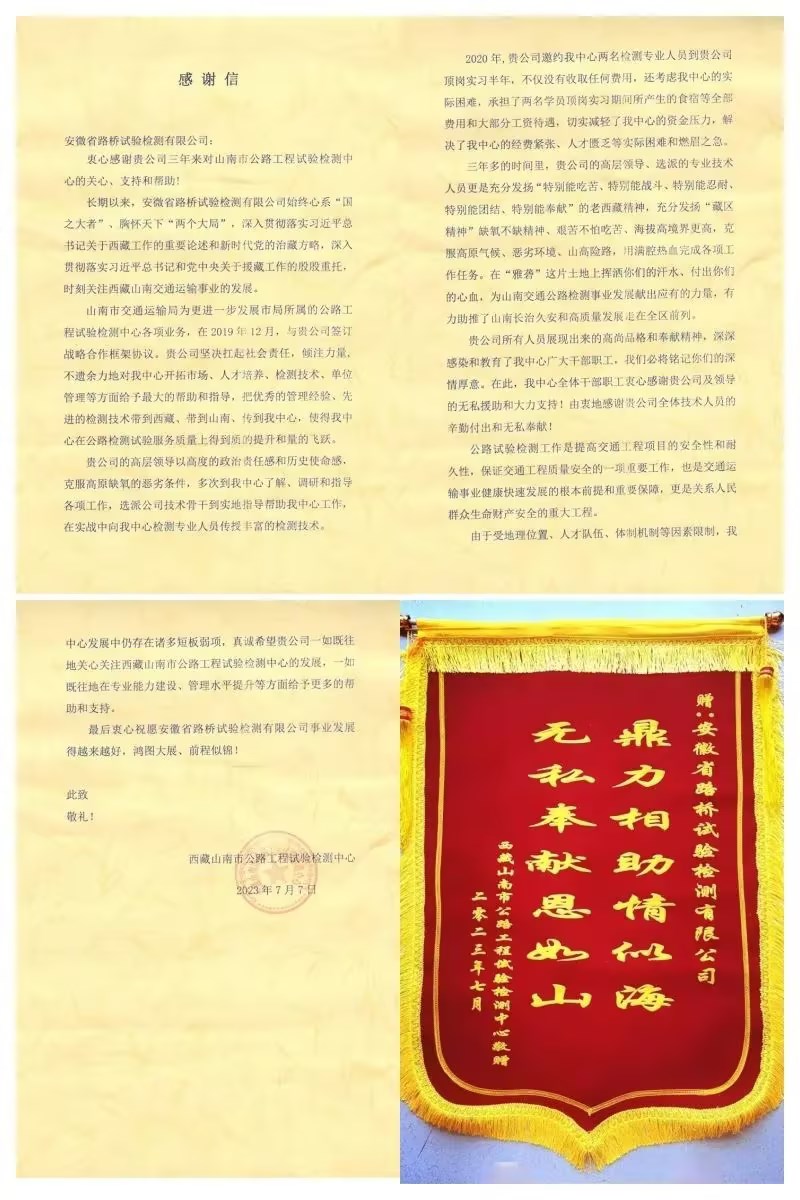 感谢信
安徽省路桥试验检测有限公司：
衷心感谢贵公司三年来对山南市公路工程试验检测中
心的关心、支持和帮助！
长期以来，安徽省路桥试验检测有限公司始终心系“国
之大者”、胸怀天下“两个大局”，深入贯彻落实习近平总
书记关于西藏工作的重要论述和新时代党的治藏方略，深入
贯彻落实习近平总书记和党中央关于援藏工作的殷殷重托，
时刻关注西藏山南交通运输事业的发展。
山南市交通运输局为更进一步发展市局所属的公路工
程试验检测中心各项业务，在2019年12月，与贵公司签订
战略合作框架协议。贵公司坚决扛起社会责任，倾注力量，
不遗余力地对我中心开拓市场、人才培养、检测技术、单位
管理等方面给予最大的帮助和指导，把优秀的管理经验、先
进的检测技术带到西藏、带到山南、传到我中心，使得我中
心在公路检测试验服务质量上得到质的提升和量的飞跃。
贵公司的高层领导以高度的政治责任感和历史使命感，
克服高原缺氧的恶劣条件，多次到我中心了解、调研和指导
各项工作，选派公司技术骨干到实地指导帮助我中心工作，
在实战中向我中心检测专业人员传授丰富的检测技术。
2020年，贵公司邀约我中心两名检测专业人员到贵公司
顶岗实习半年，不仅没有收取任何费用，还考虑我中心的实
际困难，承担了两名学员顶岗实习期间所产生的食宿等全部
费用和大部分工资待遇，切实减轻了我中心的资金压力，解
决了我中心的经费紧张、人才匮乏等实际困难和燃眉之急。
三年多的时间里，贵公司的高层领导、选派的专业技术
人员更是充分发扬“特别能吃苦、特别能战斗、特别能忍耐、
特别能团结、特别能奉献”的老西藏精神，充分发扬“藏区
精神”缺氧不缺精神、艰苦不怕吃苦、海拔高境界更高，克
服高原气候、恶劣环境、山高险路，用满腔热血完成各项工
作任务。在“雅砻”这片土地上挥洒你们的汗水、付出你们
的心血，为山南交通公路检测事业发展献出应有的力量，有
力助推了山南长治久安和高质量发展走在全区前列。
贵公司所有人员展现出来的高尚品格和奉献精神，深深
感染和教育了我中心广大干部职工，我们必将铭记你们的深
情厚意。在此，我中心全体干部职工衷心感谢贵公司及领导
的无私援助和大力支持！由衷地感谢贵公司全体技术人员的
辛勤付出和无私奉献！
公路试验检测工作是提高交通工程项目的安全性和耐
久性，保证交通工程质量安全的一项重要工作，也是交通运
输事业健康快速发展的根本前提和重要保障，更是关系人民
群众生命财产安全的重大工程。
由于受地理位置、人才队伍、体制机制等因素限制，我
中心发展中仍存在诸多短板弱项，真诚希望贵公司一如既往
地关心关注西藏山南市公路工程试验检测中心的发展，一如
既往地在专业能力建设、管理水平提升等方面给予更多的帮
助和支持。
最后衷心祝愿安徽省路桥试验检测有限公司事业发展
得越来越好，鸿图大展、前程似锦！
此致
敬礼！
西藏山南市公路工程试验检测中心
2023年7月7日
赠：安徽省路桥试验检测有限公司
鼎力相助情似海
无私奉献恩如山
西藏山南市公路工程试验检测中心敬赠
二零二三年七月